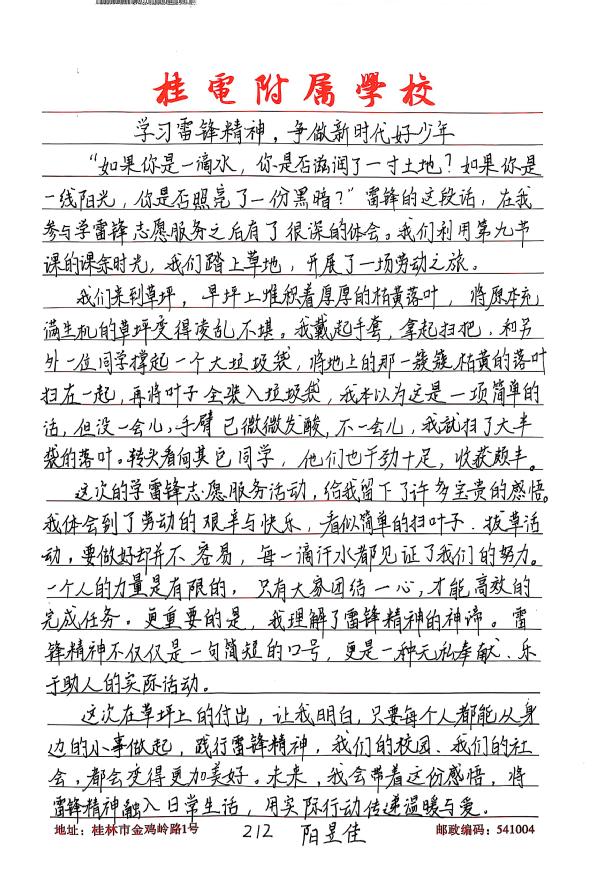 桂電附属學校
学习雷锋精神，争做新时代好少年
“如果你是一滴水，你是否滋润了一寸土地？如果你是
一线阳光，你是否照亮了一份黑暗？”雷锋的这段话，在我
参与学雷锋志愿服务之后有了很深的体会。我们利用第九节
课的课余时光，我们踏上草地，开展了一场劳动之旅。
我们来到草坪，草坪上堆积着厚厚的枯黄落叶，将原本充
满生机的草坪变得凌乱不堪。我戴起手套，拿起扫把，和另
外一位同学撑起一个大垃圾袋，将地上的那一簇簇枯黄的落叶
扫在一起，再将叶子全装入垃圾袋，我本以为这是一项简单的
话，但没一会儿，手臂已微微发酸，不一会儿，我就扫了大半
袋的落叶。转头看向其它同学，他们也干劲十足，收获颇丰。
这次的学雷锋志愿服务活动，给我留下了许多宝贵的感悟。
我体会到了劳动的艰辛与快乐，看似简单的扫叶子、拔草活
动，要做好却并不容易，每一滴汗水都见证了我们的努力。
一个人的力量是有限的，只有大家团结一心，才能高效的
完成任务。更重要的是，我理解了雷锋精神的神谛。雷
锋精神不仅仅是一句简短的口号，更是一种无私奉献、乐
于助人的实际活动。
这次在草坪上的付出，让我明白，只要每个人都能从身
边的小事做起，践行雷锋精神，我们的校园、我们的社
会，都会变得更加美好。未来，我会带着这份感悟，将
雷锋精神融入日常生活，用实际行动传递温暖与爱。
地址：桂林市金鸡岭路1号 212 阳昱佳 邮政编码：541004